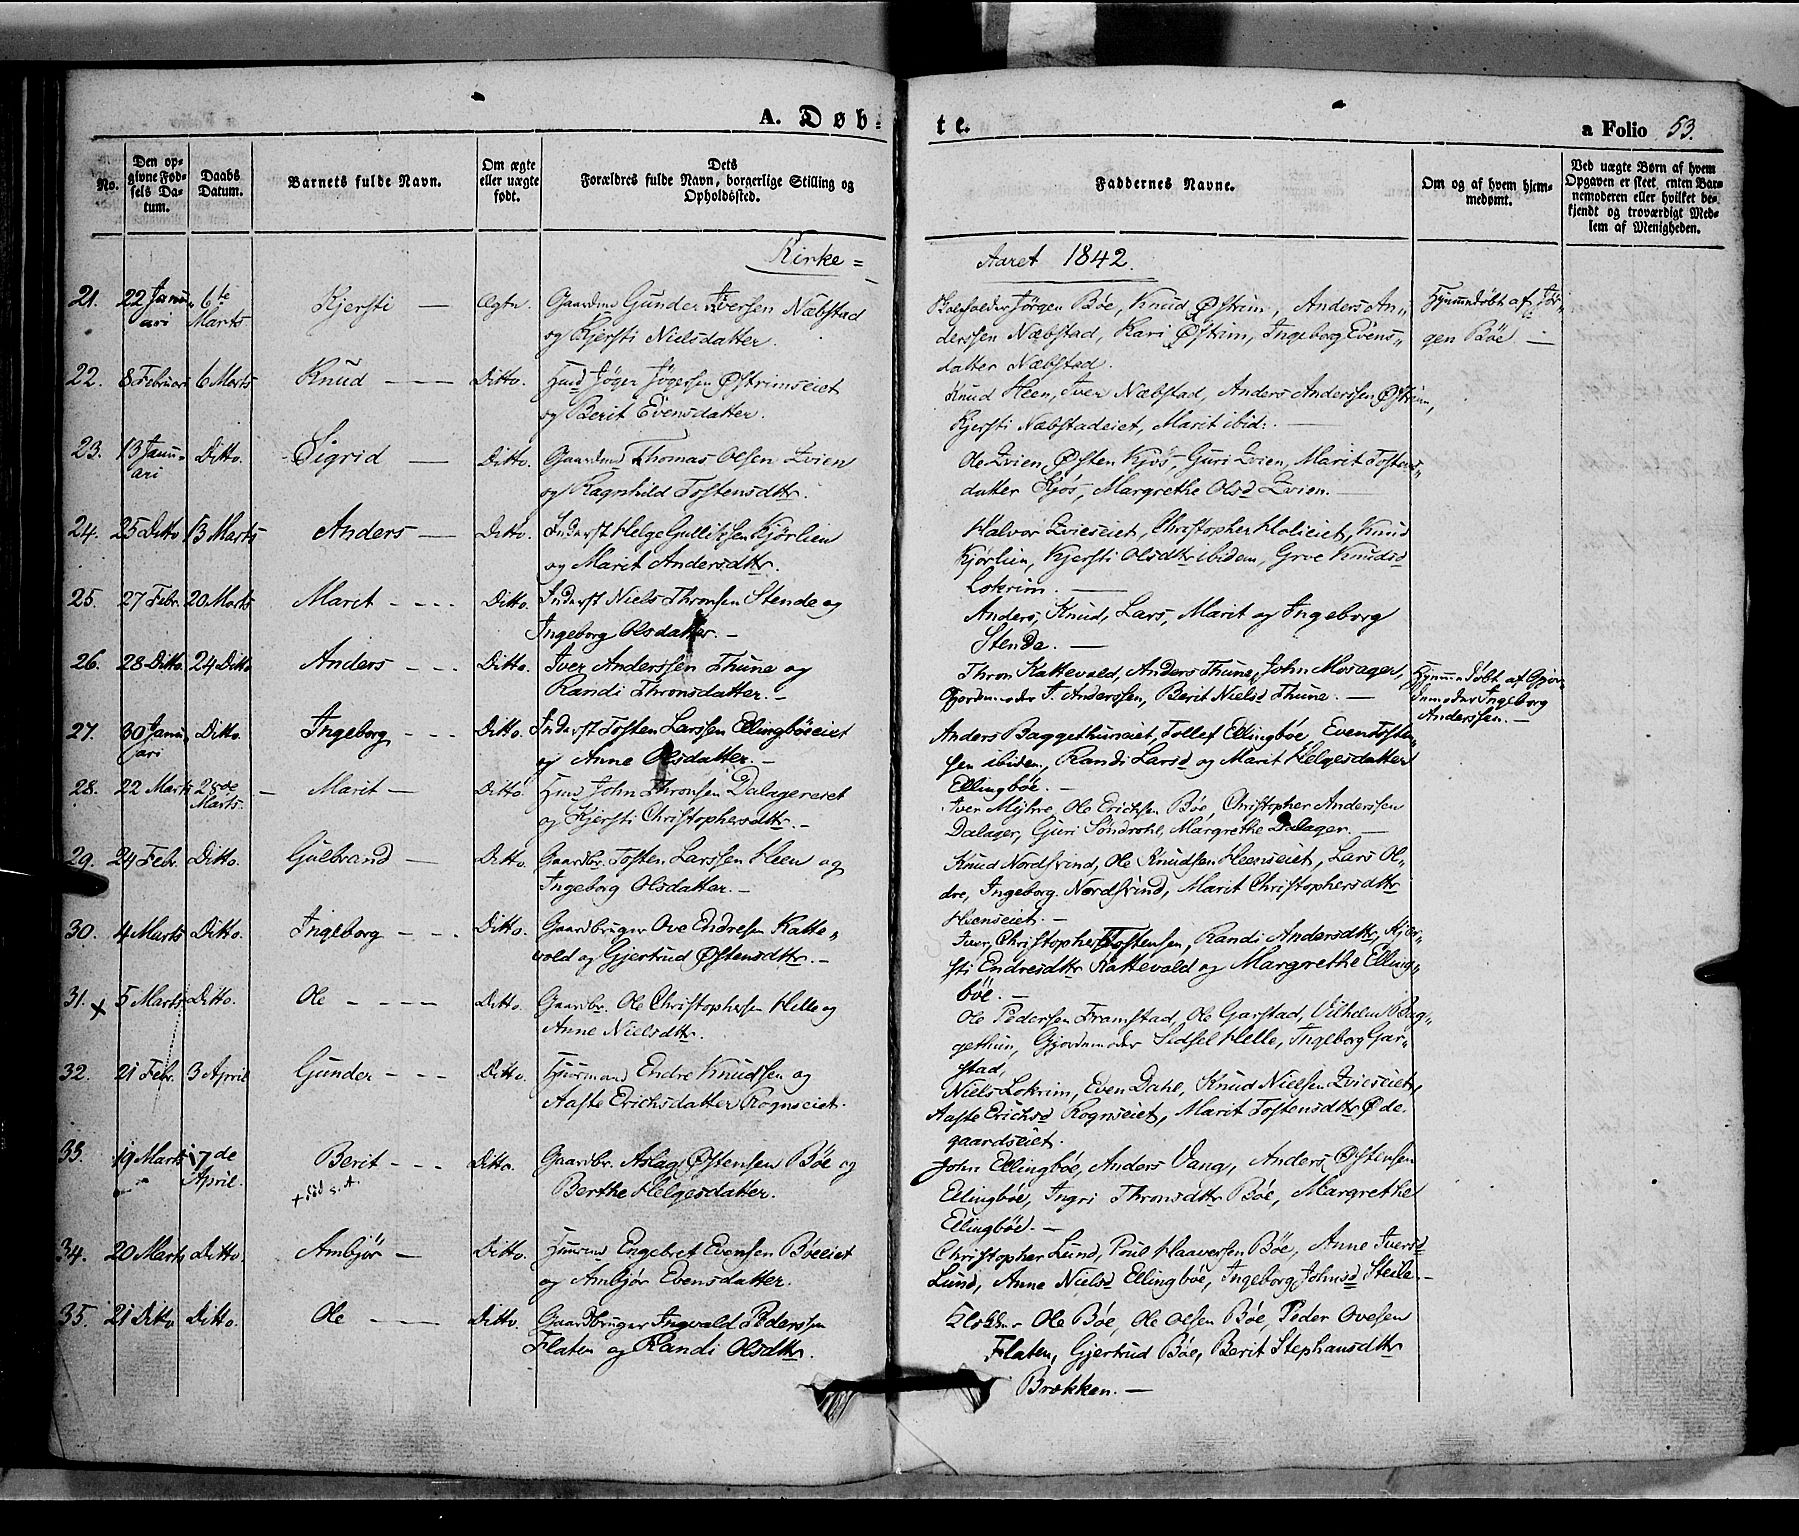 A. Døb-
te.
a Folio 53.
No.
Den op-
givne Fød-
sels Da-
tum.
Daabs
Datum.
Barnets fulde Navn.
Om ægte
eller uægte
født.
Dets
Forældres fulde Navn, borgerlige Stilling og
Opholdssted.
Faddernes Navne.
Om og af hvem hjem-
medømt.
Ved uægte Børn af hvem
Opgaven er skeet, enten Bar-
nemoderen eller hvilket be-
kjendt og troværdigt Med-
lem af Menigheden.
Kirke =
Aaret 1842.
21. 22 Janu- 6te Kjersti — Ægte. Gaardmd Gunder Iversen Næbstad
ari Marts og Kjersti Nielsdatter.
Jørgen Bøe, Knud Østrim, Anders An-
derssen Næbstad, Kari Østrim, Ingeborg Evens-
datter Næbstad.
Hjemmedøbt af Jør-
gen Bøe —
22. 8 Februari 6 Marts Knud — Ditto. Jøger Jøgersen Østrimseiet
og Berit Evensdatter.
Knud Heen, Iver Næbstad, Anders Anderssen Østrim,
Kjersti Næbstadeiet, Marit ibid: —
23. 13 Janu- Ditto. Sigrid — Ditto. Gaardmd Thomas Olsen Qvien
ari og Ragnhild Tostensdtr.
Ole Qvien, Østen Kjøs, Guri Qvien, Marit Tostens-
datter Kjøs, Margrethe Olsd Qvien. —
24. 25 Ditto 13 Marts Anders — Ditto. Inderst Helge Gulliksen Kjørlien
og Marit Andersdtr.
Halvor Qvieseiet, Christopher Holieiet, Knud
Kjørlien, Kjersti Olsdtr ibidem, Groe Knudsd
Lokrim. —
25. 27 Febr. 20 Marts Marit — Ditto. Inderst Niels Thronsen Stende og
Ingeborg Olsdatter. —
Anders, Knud, Lars, Marit og Ingeborg
Stende. —
26. 28 Ditto. 24 Ditto Anders — Ditto. Iver Anderssen Thune og
Randi Thronsdatter. —
Thron Kattevold, Anders Thune, John Mosager,
Gjordemoder I. Anderssen, Berit Nielsd Thune. —
Hjemmedøbt af Gjor-
demoder Ingeborg
Anderssen. —
27. 30 Janu- Ditto. Ingeborg — Ditto. Inderst Tosten Larssen Ellingbøeeiet
ari og Anne Olsdatter. —
Anders Baggethuneiet, Tollef Ellingbøe, Even Tosten-
sen ibidem, Randi Larsd og Marit Helgesdatter
Ellingbøe. —
28. 22 Marts 28de Marit — Ditto John Thronsen Dalagereiet
Marts. og Kjersti Christophersdtr. —
Iver Myhre, Ole Erichsen Bøe, Christopher Anderssen
Dalager, Guri Søndrohl, Margrethe Dalager. —
29. 24 Febr. Ditto. Gulbrand — Ditto. Gaardbr. Tosten Larssen Heen og
Ingeborg Olsdatter. —
Knud Nordsvind, Ole Knudsen Heenseiet, Lars Ol-
dre, Ingeborg Nordsvind, Marit Christophersdtr
Heenseiet. —
30. 4 Marts Ditto. Ingeborg — Ditto. Gaardbruger Ove Endresen Katte-
vold og Gjertrud Østensdtr. —
Iver, Christopher Tostensen, Randi Andersdtr, Kjer-
sti Endresdtr Kattevold og Margrethe Elling-
bøe. —
31. x 5 Marts Ditto. Ole — Ditto. Gaardbr. Ole Christophersen Helle og
Anne Nielsdtr.
Ole Pedersen Framstad, Ole Garstad, Vilhelm Bag-
gethun, Gjordemoder Sidsel Helle, Ingeborg Gar-
stad,
32. 21 Febr. 3 April Gunder — Ditto. Huusmand Endre Knudsen og
Aaste Erichsdatter Rogneseiet.
Niels Lokrim, Even Dahl, Knud Nielsen Qvieseiet,
Aaste Erichsd Rognseiet, Marit Tostensdtr Øde-
gaardseiet.
33. 19 Marts 17de Berit — Ditto. Gaardbr. Aslag Østensen Bøe og
April. + død s. A. Berthe Helgesdatter.
John Ellingbøe, Anders Vang, Anders Østensen
Ellingbøe, Ingri Thronsdtr Bøe, Margrethe
Ellingbøe. —
34. 20 Marts Ditto. Ambjør — Ditto. Engebret Evensen Bøeeiet
og Ambjør Evensdatter.
Christopher Lund, Poul Haaversen Bøe, Anne Iversd
Lund, Anne Nielsd Ellingbøe, Ingeborg Johnsd Steile. —
35. 21 Ditto Ditto. Ole — Ditto. Gaardbruger Ingvald Pederssen
Flaten og Randi Olsdtr.
Klokker Ole Bøe, Ole Olsen Bøe, Peder Ovesen
Flaten, Gjertrud Bøe, Berit Stephansdtr
Brækken. —